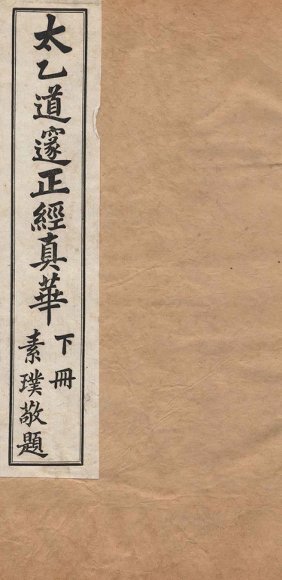 太乙道邃正經真華
下冊
素璞敬題